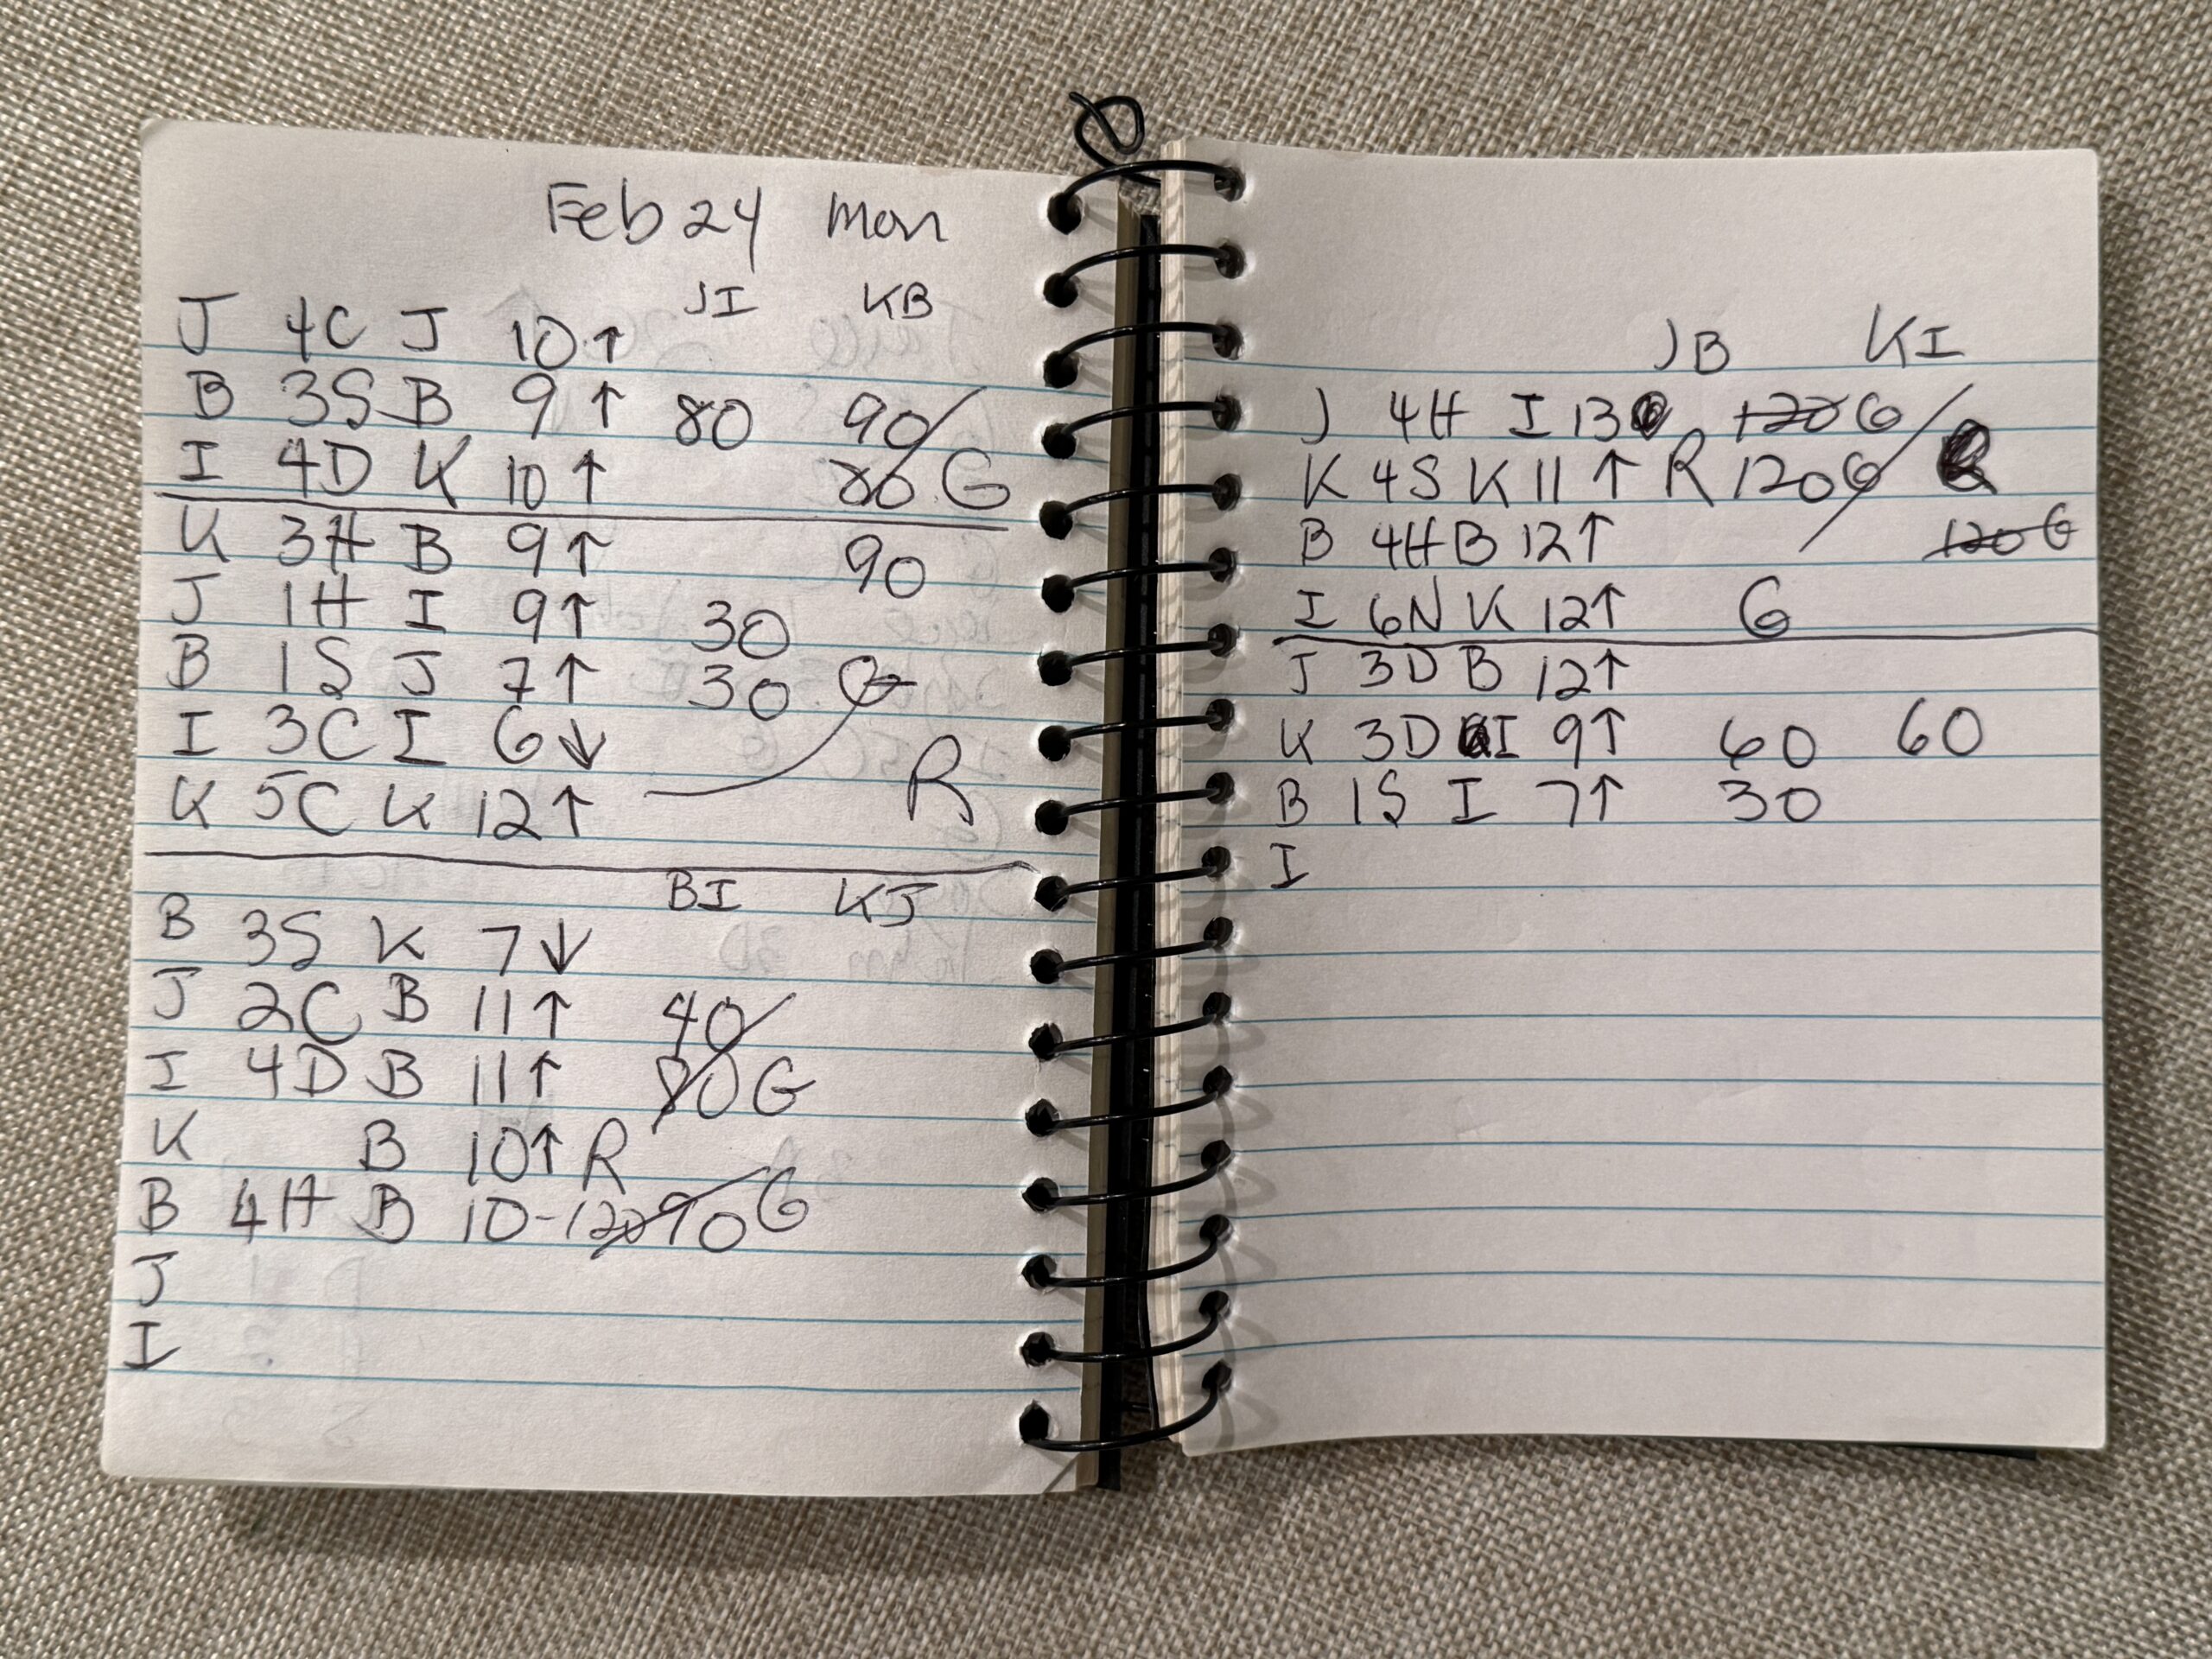 Feb 24 Mon
JI KB
J 4C J 10↑
B 3S B 9↑ 80 90
I 4D K 10↑ 80 G
K 3H B 9↑ 90
J 1H I 9↑ 30
B 1S J 7↑ 30 G
I 3C I 6↓
K 5C K 12↑ R
BI KJ
B 3S K 7↓
J 2C B 11↑ 40
I 4D B 11↑ 80 G
K B 10↑ R
B 4H B 10-120 90 G
J
I
JB KI
J 4H I 13 120 G
K 4S K 11↑ R 120 G
B 4H B 12↑ 120 G
I 6N K 12↑ G
J 3D B 12↑
K 3D I 9↑ 60 60
B 1S I 7↑ 30
I